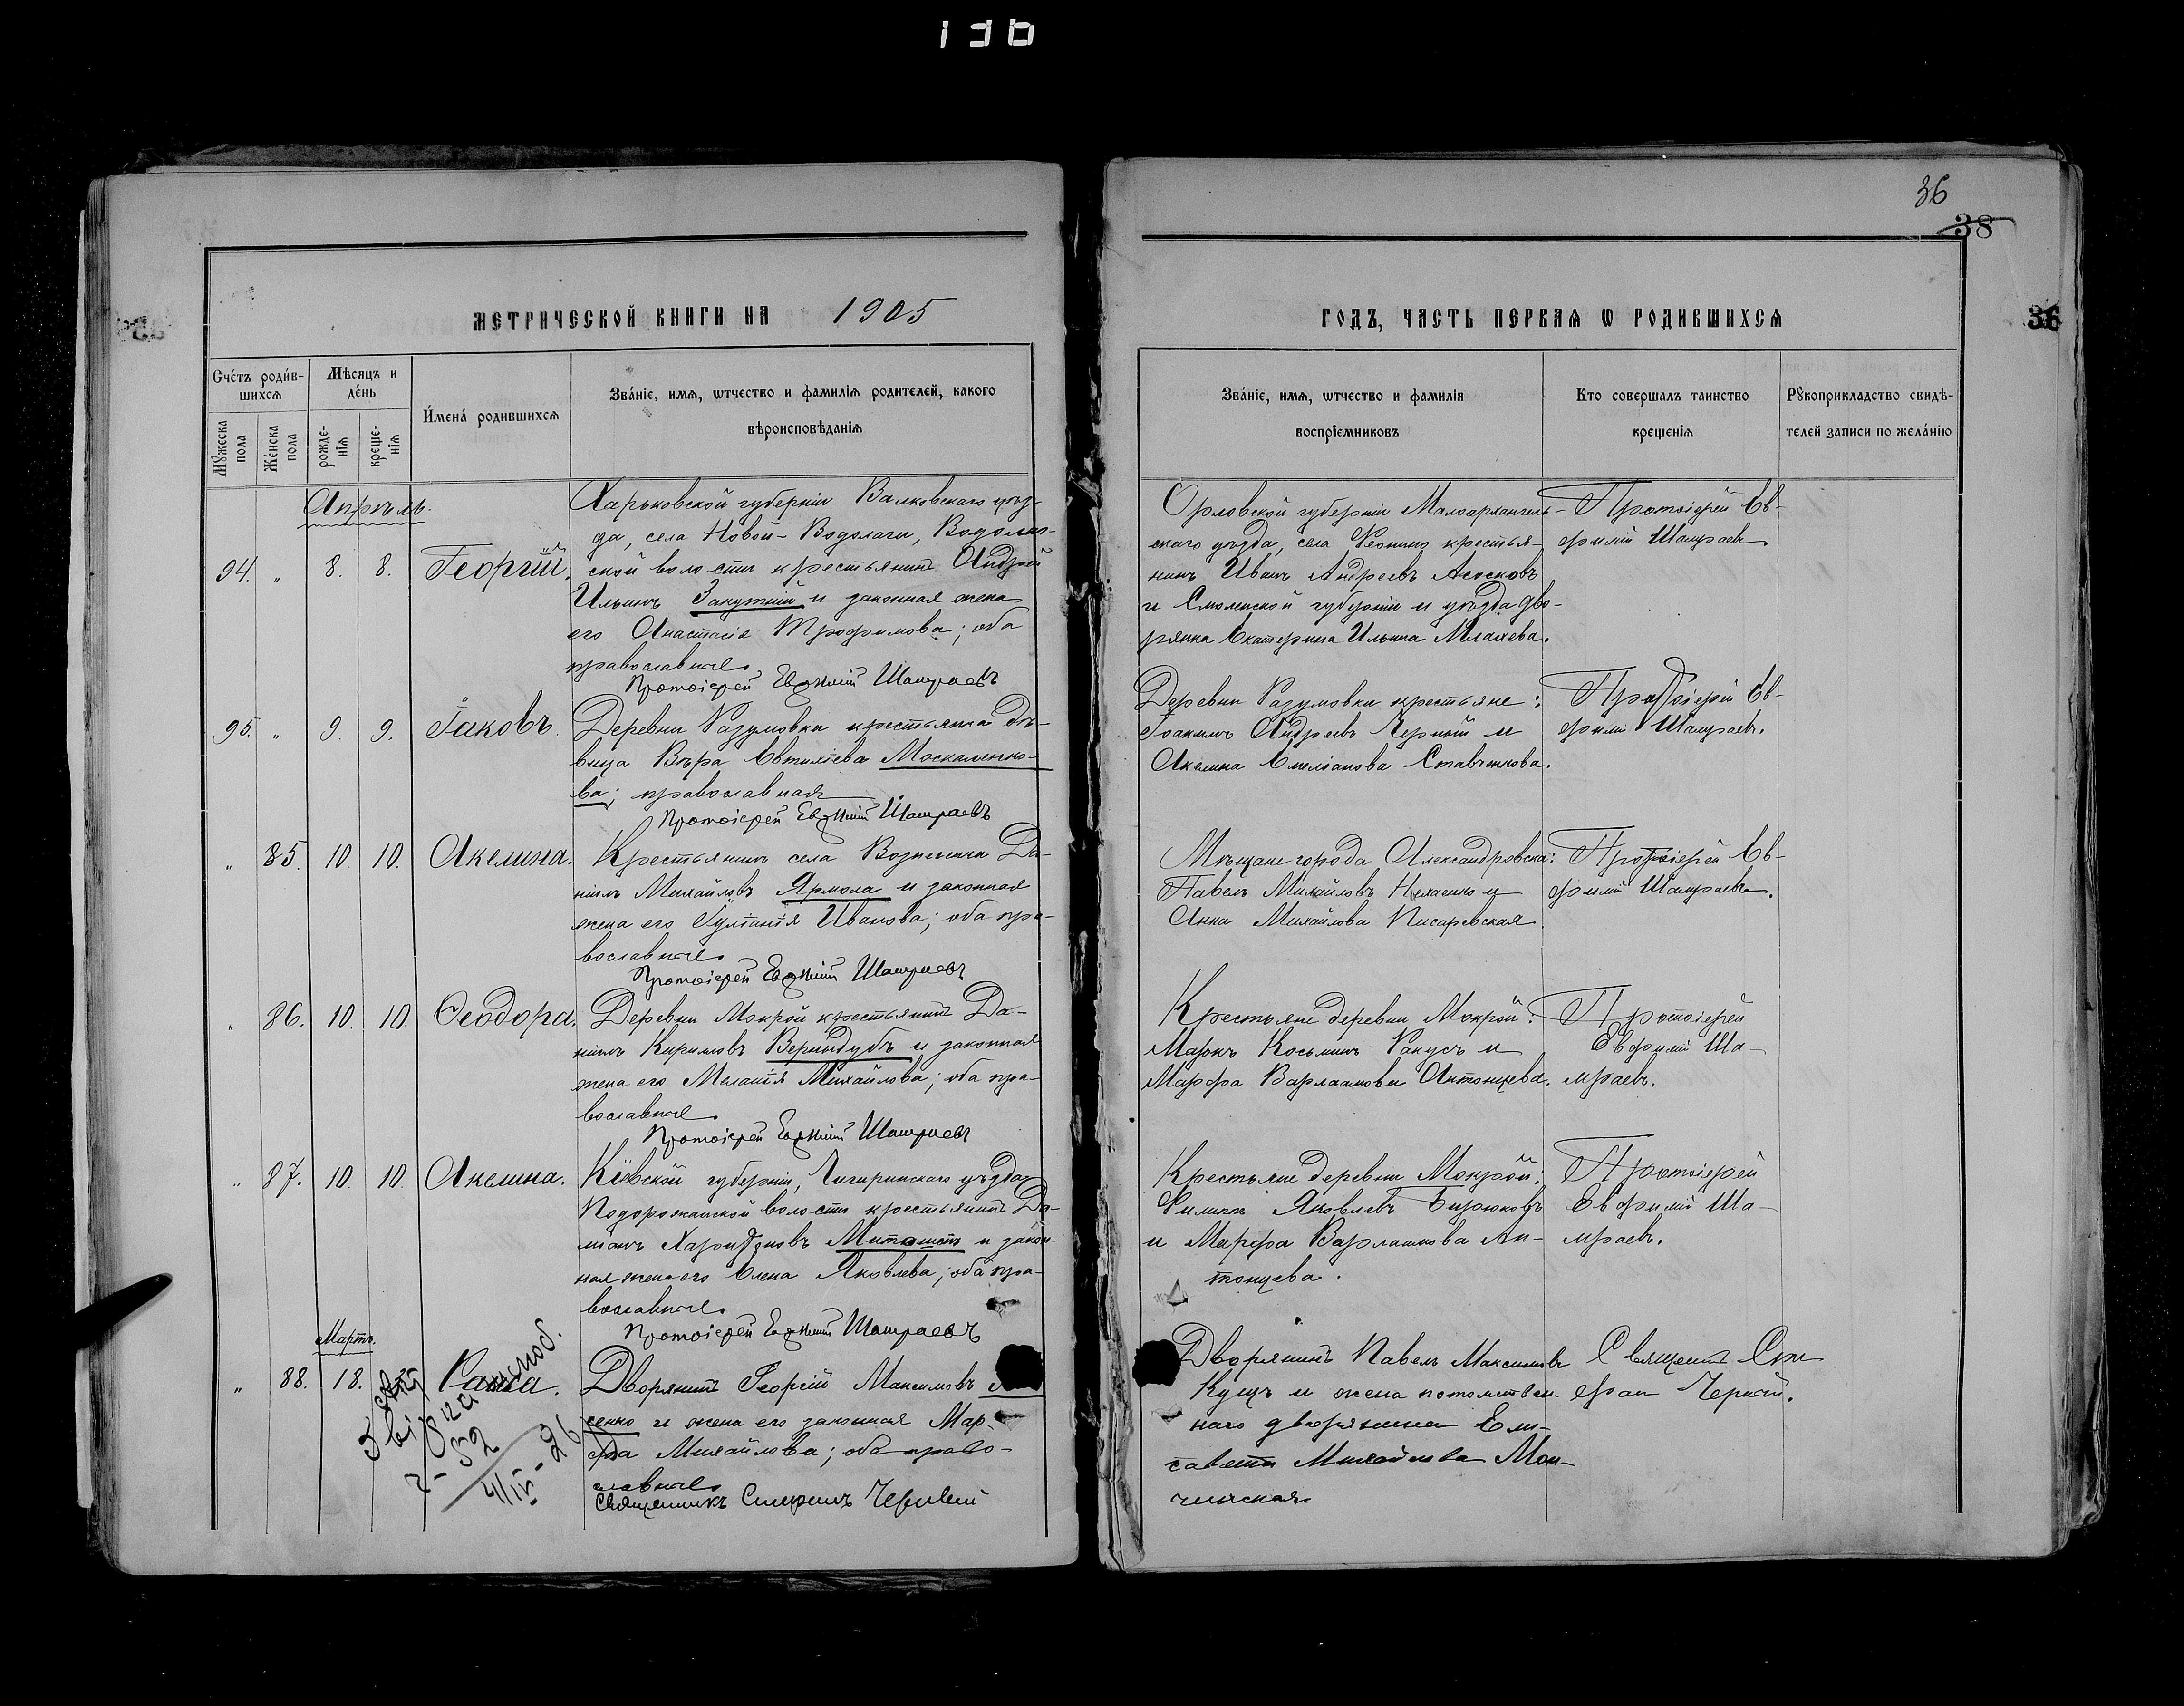 136
36
38
36
МЕТРИЧЕСКОЙ КНИГИ НА 1905
ГОДЪ, ЧАСТЬ ПЕРВАѦ Ѡ РОДИВШИХСѦ
Счéтъ роди́в-
шихсѧ
Мꙋжеска
пола
Жéнска
пола
Мѣсѧцъ и
дéнь
рожде-
нїѧ
креще-
нїѧ
И҆мена́ родившихсѧ
Зва́нїе, имѧ, ѡтчество и фамилїѧ родителей, какого
вѣроисповѣданїѧ
Зва́нїе, имѧ, ѡтчество и фамилїѧ
воспрїемниковъ
Кто совершалъ таинство
крещенїѧ
Рꙋкоприкладство свидѣ-
телей записи по жела́нїю
Апрѣль.
94. „ 8. 8. Георгій.
Харьковской губерніи Валковскаго уѣз-
да, села Новой-Водолаги, Водолаж-
ской волости крестьянинъ Андрей
Ильинъ Закутній и законная жена
его Анастасія Трофимова; оба
православные.
Протоіерей Евфимій Шамраевъ
Орловской губерніи Малоархангель-
скаго уѣзда, села крестья-
нинъ Иванъ Андреевъ Асосковъ
и Смоленской губерніи и уѣзда дво-
рянка Екатерина Ильина
Протоіерей Ев-
фимій Шамраевъ.
95. „ 9. 9. Іаковъ.
Деревни Разумовки крестьянка дѣ-
вица Вѣра Евтихіева Москаленко-
ва; православная
Протоіерей Евфимій Шамраевъ
Деревни Разумовки крестьяне:
Іоакимъ Андреевъ Черный и
Акилина Емеліанова Ставченкова.
Протоіерей Ев-
фимій Шамраевъ.
„ 85. 10. 10. Акилина.
Крестьянинъ села Вознесенки Да-
ніилъ Михайловъ Ярмола и законная
жена его Іуліанія Иванова; оба пра-
вославные.
Протоіерей Евфимій Шамраевъ
Мѣщане города Александровска:
Павелъ Михайловъ Нехаенко и
Анна Михайлова Писаревская
Протоіерей Ев-
фимій Шамраевъ.
„ 86. 10. 10. Ѳеодора.
Деревни Мокрой крестьянинъ Да-
ніилъ Кириловъ Вернидубъ и законная
жена его Меланія Михайлова; оба пра-
вославные.
Протоіерей Евфимій Шамраевъ
Крестьяне деревни Мокрой:
Маркъ Косьминъ Ракусъ и
Марфа Варлаамова Антонцева.
Протоіерей
Евфимій Ша-
мраевъ.
„ 87. 10. 10. Акилина.
Кіевской губерніи, Чигиринскаго уѣзда,
Подорожанской волости крестьянинъ Да-
міанъ Харитоновъ и закон-
ная жена его Елена Яковлева; оба пра-
вославные.
Протоіерей Евфимій Шамраевъ
Крестьяне деревни Мокрой:
Филиппъ Яковлевъ Бирюковъ
и Марфа Варлаамова Ан-
тонцева.
Протоіерей
Евфимій Ша-
мраевъ.
Мартъ.
„ 88. 18. Раиса.
Дворянинъ Георгій Максимовъ
сенко и жена его законная Мар-
фа Михайлова; оба право-
славные.
Священникъ Симеонъ Чернявскій
Дворянинъ Павелъ Максимовъ
Кущъ и жена потомствен-
наго дворянина Ели-
савета Михайлова Мон-
чинская.